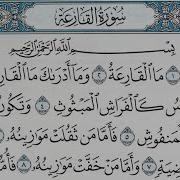 سُورَةُ القَارِعَةِ
بِسْمِ اللَّهِ الرَّحْمَٰنِ الرَّحِيمِ
١ مَا الْقَارِعَةُ ٢ وَمَا أَدْرَىٰكَ مَا الْقَارِ
سُ كَالْفَرَاشِ الْمَبْثُوثِ ٤ وَتَكُونُ
الْمَنفُوشِ ٥ فَأَمَّا مَن ثَقُلَتْ مَوَٰزِينُهُۥ ٦
ضِيَةٍ ٧ وَأَمَّا مَنْ خَفَّتْ مَوَٰزِينُهُۥ ٨ فَأُمُّ